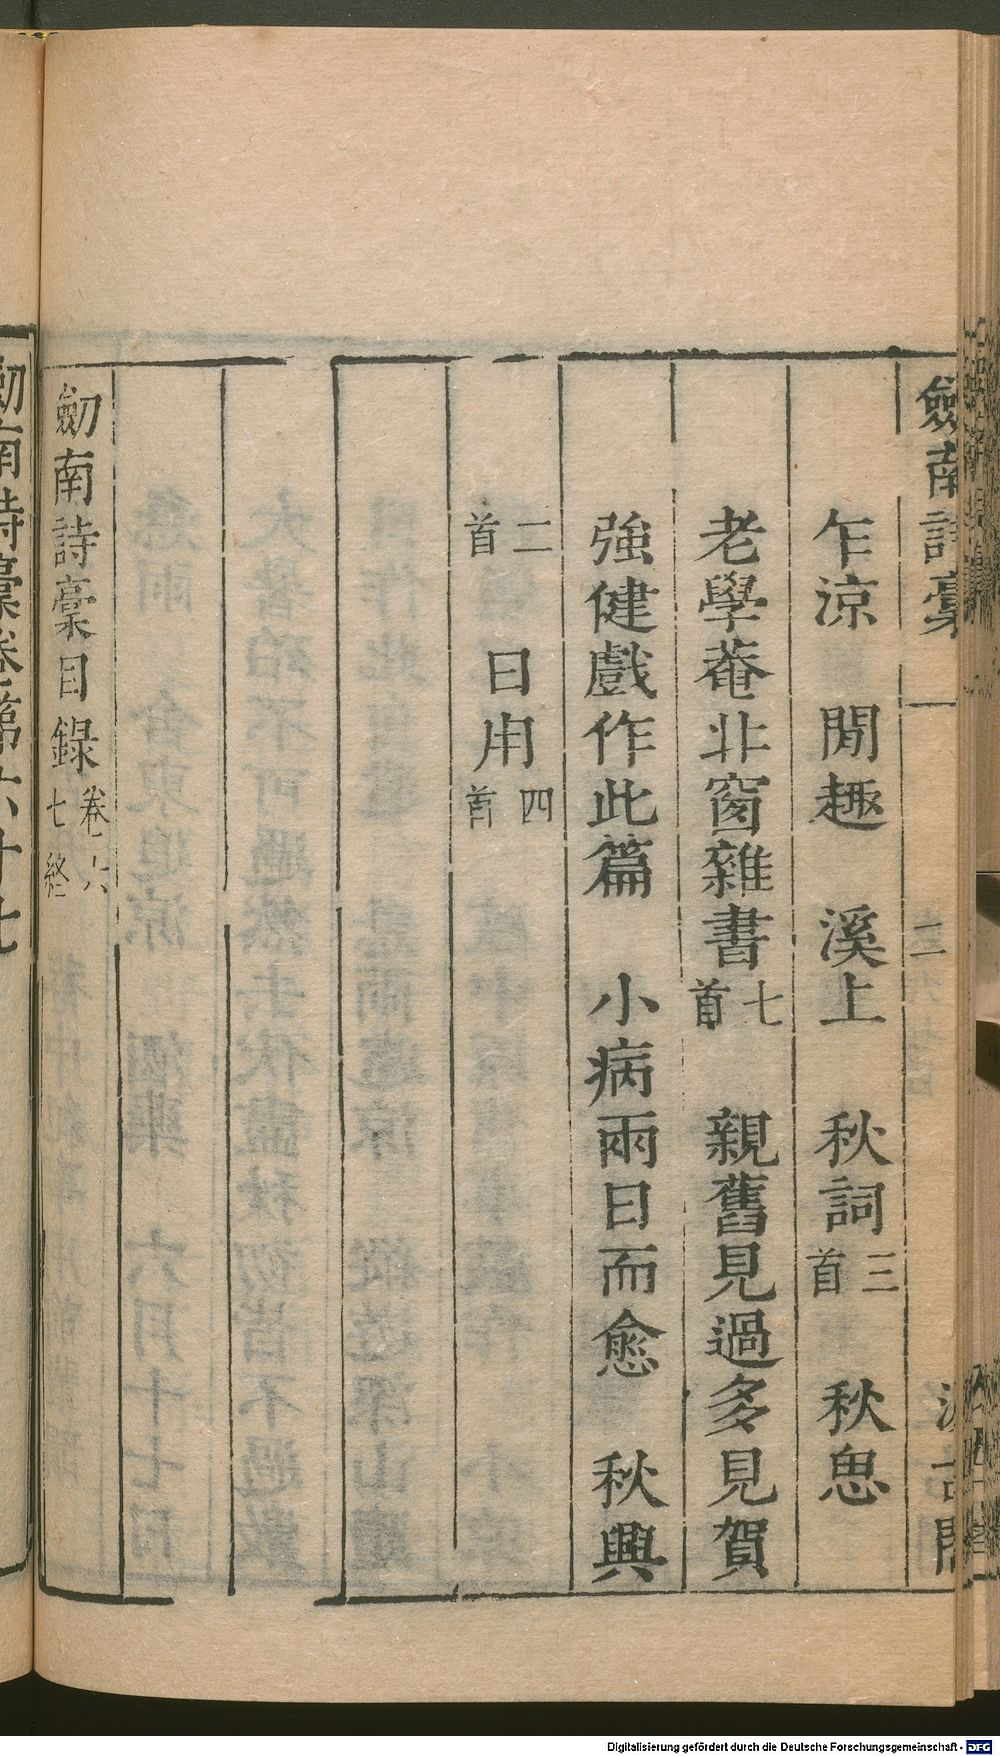 劒南詩稾 二 汲古閣
乍涼 閒趣 溪上 秋詞三首 秋思
老學菴北窗雜書七首 親舊見過多見賀
強健戲作此篇 小病兩日而愈 秋興
二首 日用四首
劒南詩稾目錄卷六十七終
劒南詩稾卷第六十七
Digitalisierung gefördert durch die Deutsche Forschungsgemeinschaft - DFG